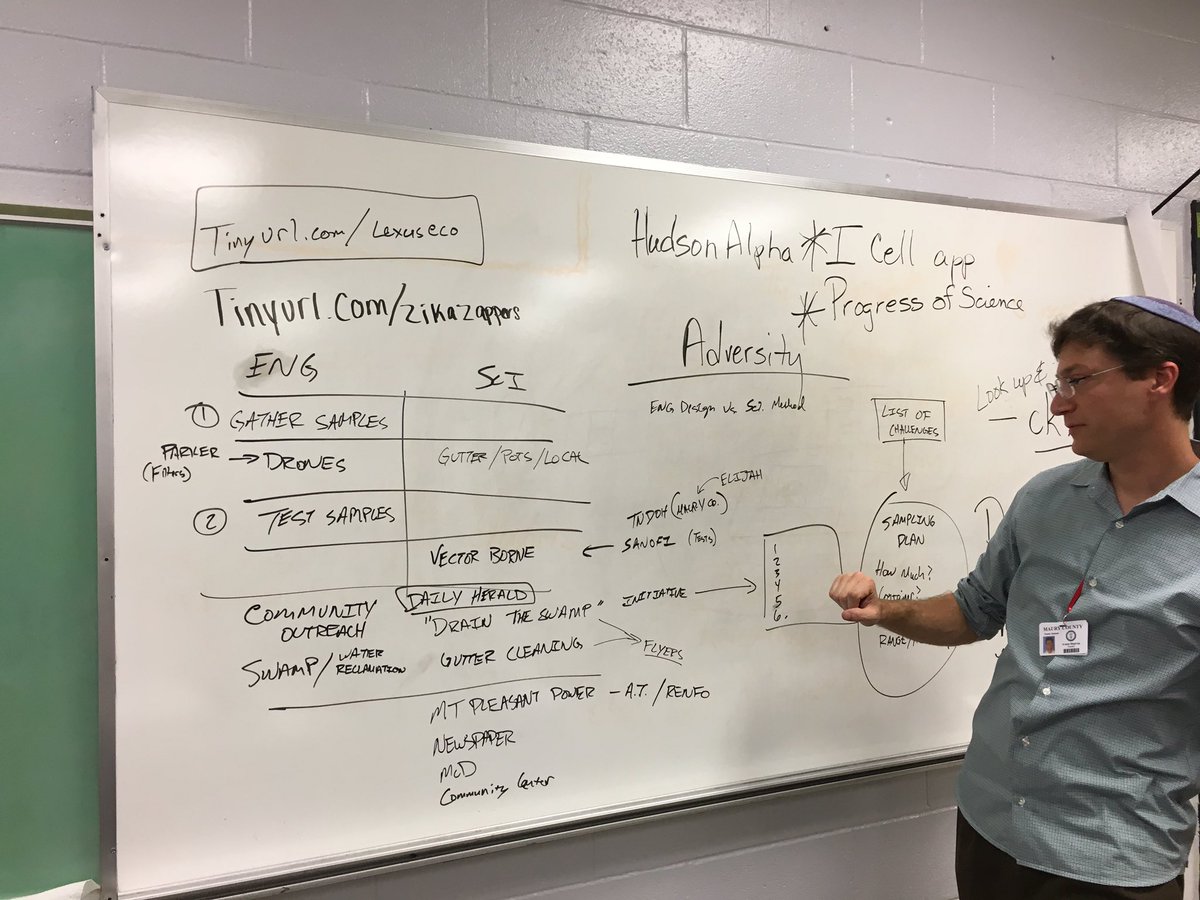 Tinyurl.com/Lexuseco
Tinyurl.com/zikazappers
HudsonAlpha * I Cell app
* Progress of Science
Adversity
ENG Design vs Sci. Method
ENG
SCI
① GATHER SAMPLES
PARKER → DRONES
(Filters)
GUTTER/POTS/LOCAL
② TEST SAMPLES
VECTOR BORNE
ELIJAH
TNDOH (MAURY CO.)
SANOFI (TESTS)
COMMUNITY
OUTREACH
DAILY HERALD
"DRAIN THE SWAMP"
INITIATIVE
SWAMP/WATER
RECLAMATION
GUTTER CLEANING
FLYERS
MT PLEASANT POWER - A.T./RENFO
NEWSPAPER
McD
Community Center
1
2
3
4
5
6.
LIST OF
CHALLENGES
SAMPLING
PLAN
How Much?
RANGE/
Look up &
MAURY COUNTY